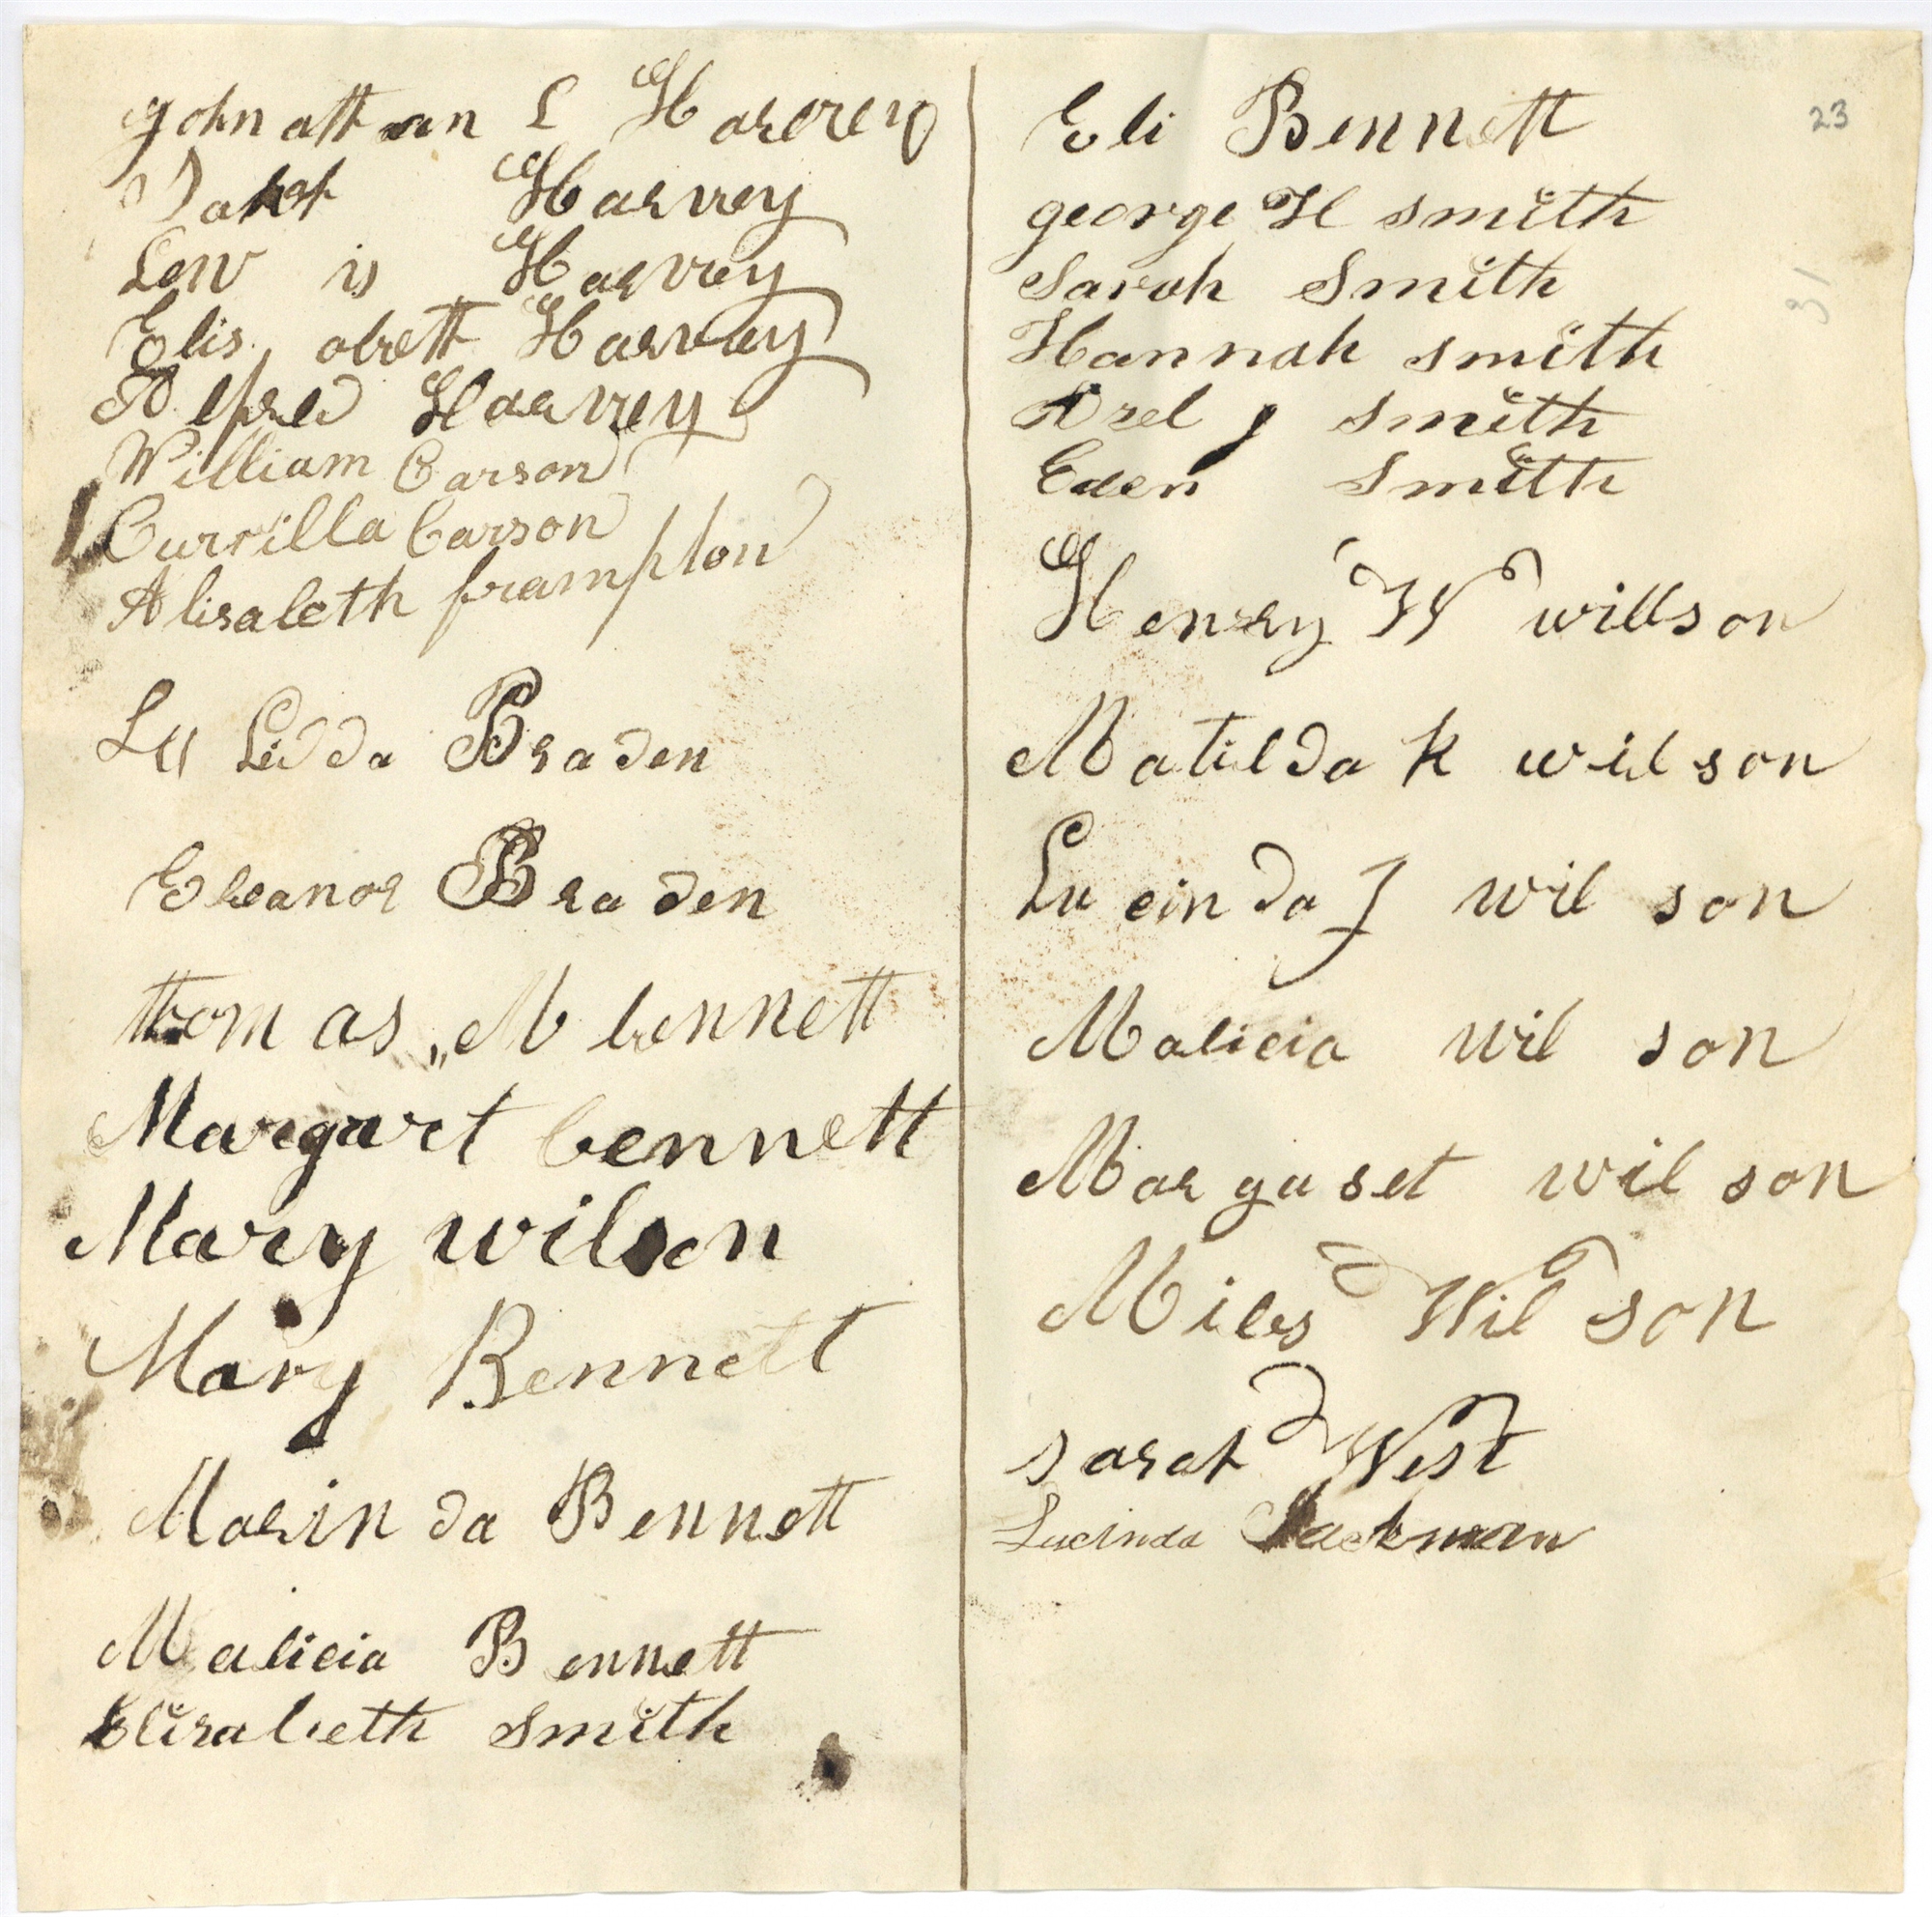 Johnattan L Harvey
Harvey
Lewis Harvey
Elisabett Harvey
Alfred Harvey
William Carson
Currilla Carson
Alisabeth frampton
Braden
Eleanor Braden
thomas M bennett
Margart bennett
Mary wilson
Mary Bennett
Marinda Bennett
Malicia Bennett
Elisabeth Smith
Eli Bennett
23
george H smith
Sarah Smith
31
Hannah smith
smith
Eden Smith
Henry W willson
Matilda K wilson
Lucinda J wilson
Malicia wilson
Margaret wilson
Miles Wilson
sarah West
Lucinda